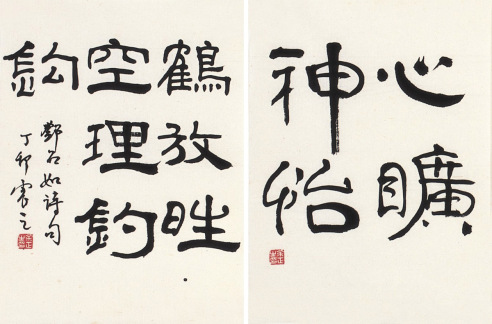 心曠
神怡
鶴放晴
空理釣
鈎
鄧石如詩句
丁卯震之